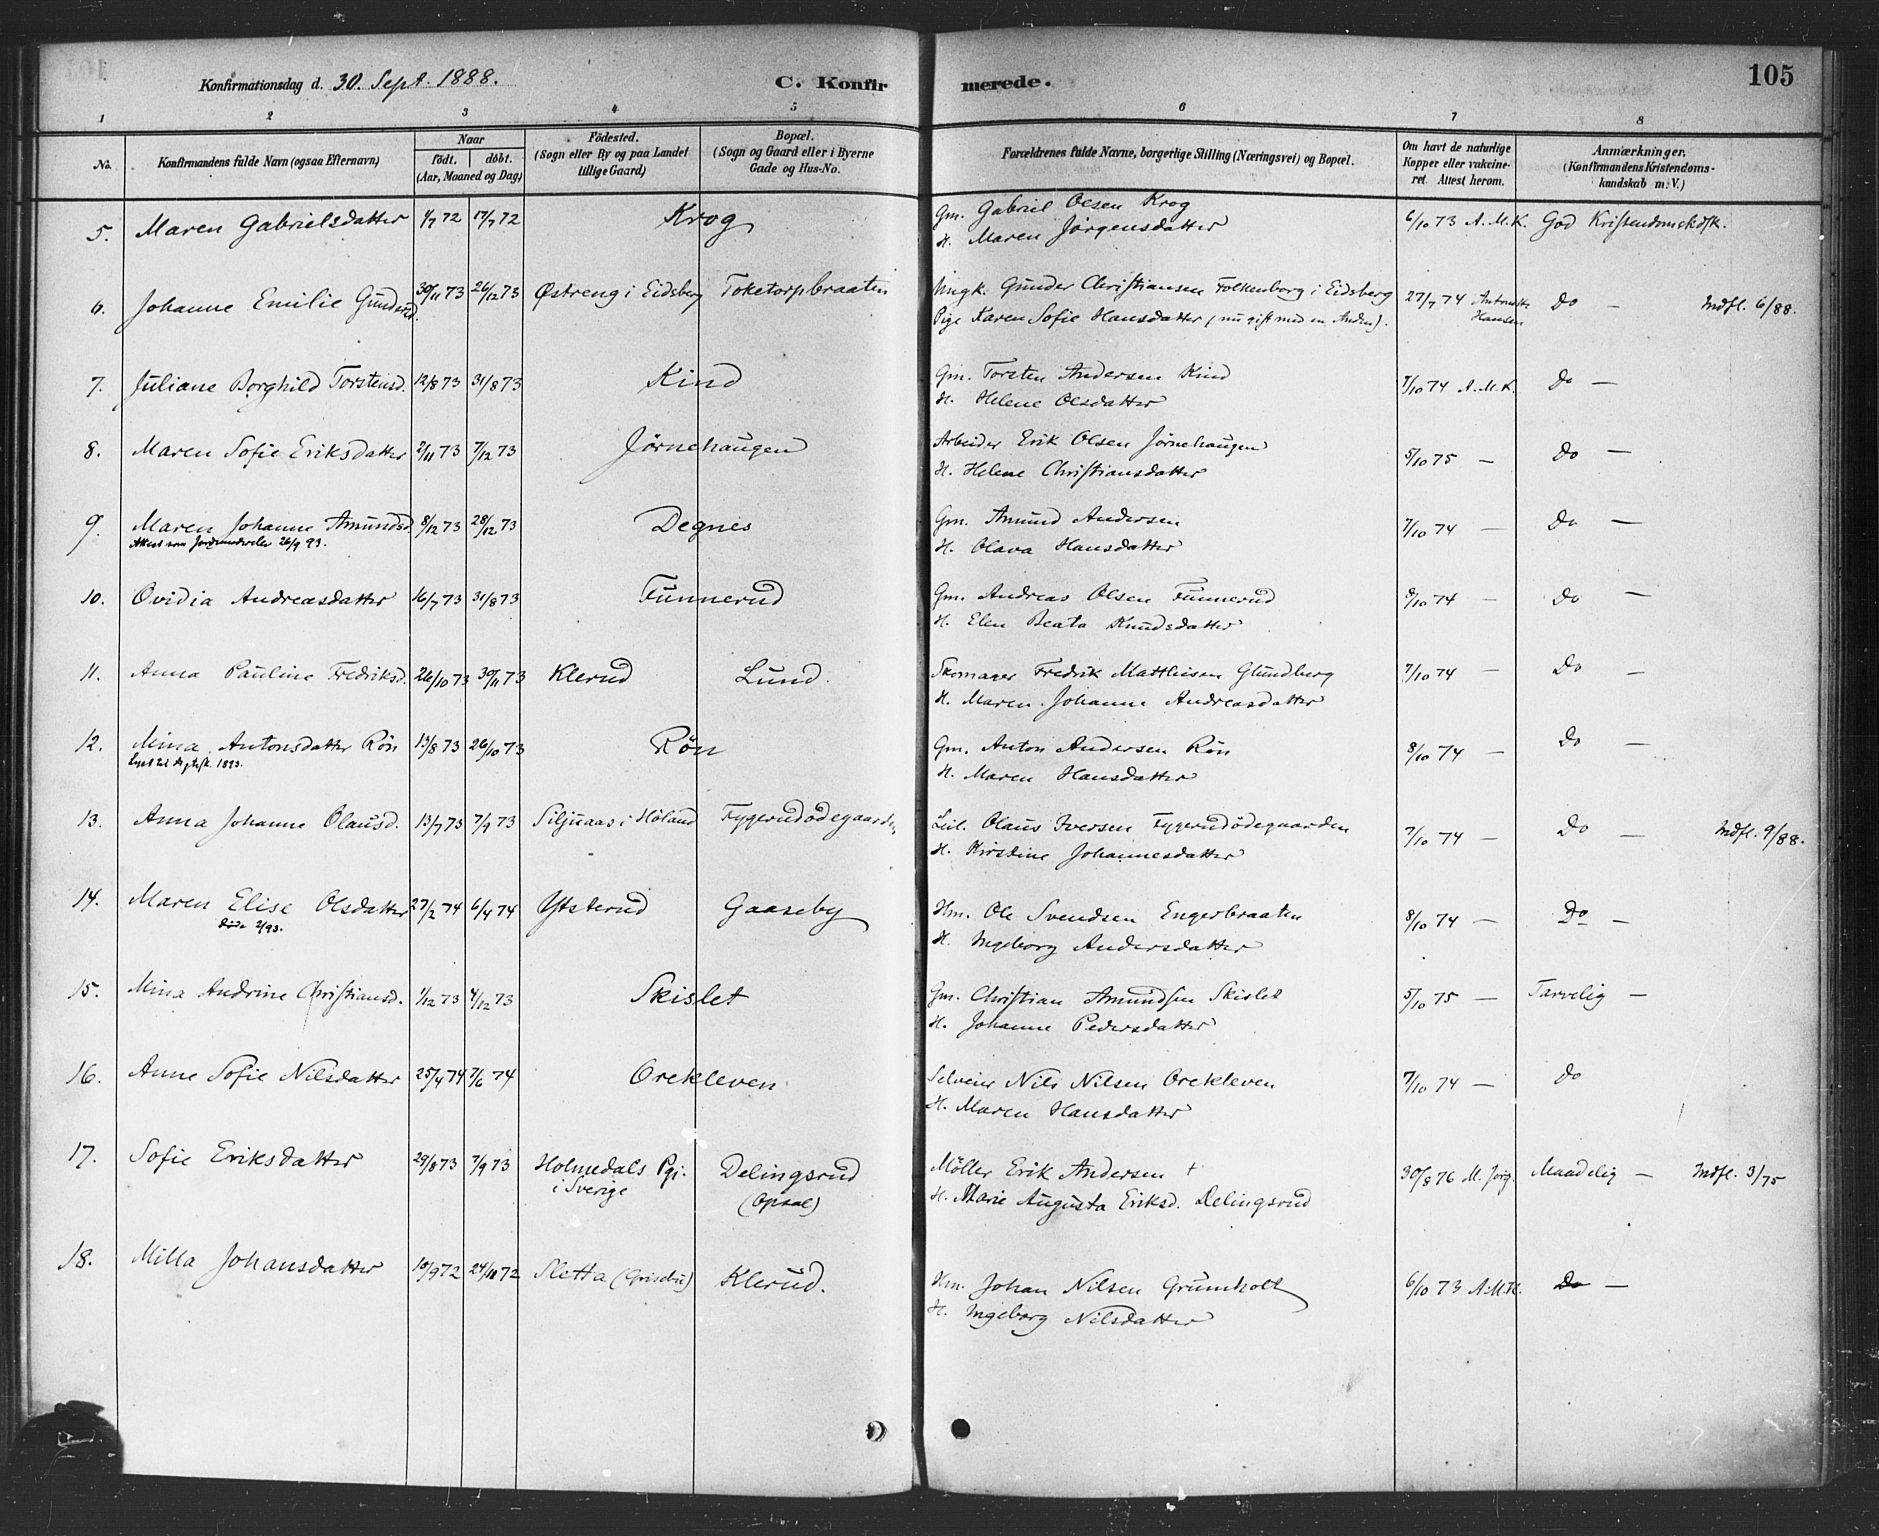 Konfirmationsdag d. 30. Sept. 1888.
C. Konfirmerede.
105
1 2 3 4 5 6 7 8
No.
Konfirmandens fulde Navn (ogsaa Efternavn)
Naar
födt. döbt.
(Aar, Maaned og Dag)
Födested.
(Sogn eller By og paa Landet
tillige Gaard)
Bopæl.
(Sogn og Gaard eller i Byerne
Gade og Hus-No.
Forældrenes fulde Navne, borgerlige Stilling (Næringsvei) og Bopæl.
Om havt de naturlige
Kopper eller vakcineret. Attest herom.
Anmærkninger.
(Konfirmandens Kristendomskundskab m. V.)
5. Maren Gabrielsdatter 1/7 72 17/7 72 Krog Gm. Gabriel Olsen Krog 6/10 73 A.M.K. God Kristendomskdsk.
H. Maren Jörgensdatter
6. Johanne Emilie Gundersd. 30/11 73 26/12 73 Østreng i Eidsberg Toketorpbraaten Ungk. Gunder Christiansen Folkenborg i Eidsberg 27/7 74 Do — Indfl. 6/88.
Pige Karen Sofie Hansdatter (nu gift med en Anden). Hansen
7. Juliane Borghild Torstensd. 12/8 73 31/8 73 Kind Gm. Torsten Andersen Kind 7/10 74 A.M.K. Do —
H. Helene Olsdatter
8. Maren Sofie Eriksdatter 2/11 73 7/12 73 Jörnehaugen Arbeider Erik Olsen Jörnehaugen 5/10 75 — Do —
H. Helene Christiansdatter
9. Maren Johanne Amundsd. 8/12 73 28/12 73 Degnes Gm. Amund Andersen 7/10 74 — Do —
Attest som 26/9 93. H. Olava Hansdatter
10. Ovidia Andreasdatter 16/7 73 31/8 73 Funnerud Gm. Andreas Olsen Funnerud 8/10 74 — Do —
H. Elen Beata Knudsdatter
11. Anna Pauline Fredriksd. 26/10 73 30/11 73 Klerud Lund. Skomager Fredrik Matthisen Glundberg 7/10 74 — Do —
H. Maren Johanne Andreasdatter
12. Mina Antonsdatter Rön 13/8 73 26/10 73 Rön Gm. Anton Andersen Rön 8/10 74 — Do —
1893. H. Maren Hansdatter
13. Anna Johanne Olausd. 13/7 73 7/9 73 Siljuaas i Höland Fygerudödegaarden Leil. Olaus Iversen Fygerudödegaarden 7/10 74 — Do — Indfl. 9/88.
H. Kirstine Johannesdatter
14. Maren Elise Olsdatter 27/2 74 6/4 74 Ytsterud Gaaseby Hm. Ole Svendsen Engerbraaten 8/10 74 — Do —
död 2/93. H. Ingeborg Andersdatter
15. Mina Andrine Christiansd. 1/12 73 4/12 73 Skislet Gm. Christian Amundsen Skislet 5/10 75 — Tarvelig —
H. Johanne Pedersdatter
16. Anne Sofie Nilsdatter 25/4 74 7/6 74 Orekleven Selveier Nils Nilsen Orekleven 7/10 74 — Do
H. Maren Hansdatter
17. Sofie Eriksdatter 29/8 73 7/9 73 Holmedals Pgj. Delingsrud Möller Erik Andersen + 30/8 76 M. Jörg. Maadelig — Indfl. 3/75
i Sverige (Opsal) H. Marie Augusta Eriksd. Delingsrud
18. Milla Johansdatter 10/9 72 24/11 72 Sletta (Grisebu) Klerud. Hm. Johan Nilsen Grumholt 6/10 73 A.M.K. Do —
H. Ingeborg Nilsdatter